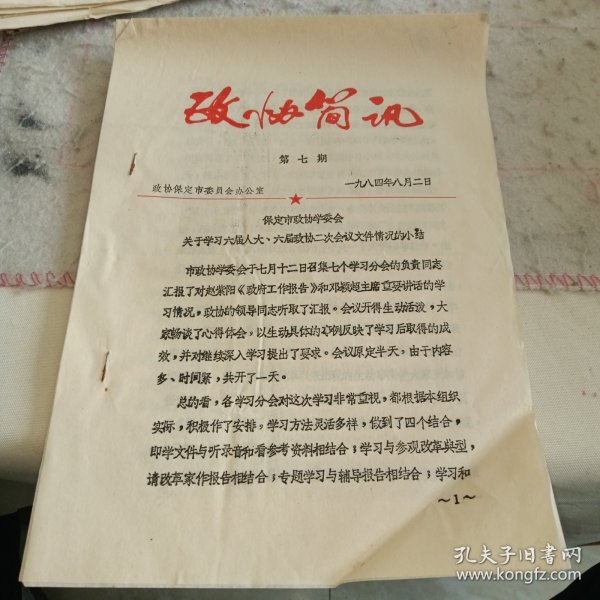 政协简讯
第七期
政协保定市委员会办公室 一九八四年八月二日
保定市政协学委会
关于学习六届人大、六届政协二次会议文件情况的小结
市政协学委会于七月十二日召集七个学习分会的负责同志
汇报了对赵紫阳《政府工作报告》和邓颖超主席重要讲话的学
习情况，政协的领导同志听取了汇报。会议开得生动活泼，大
家畅谈了心得体会，以生动具体的事例反映了学习后取得的成
效，并对继续深入学习提出了要求。会议原定半天，由于内容
多、时间紧，共开了一天。
总的看，各学习分会对这次学习非常重视，都根据本组织
实际，积极作了安排，学习方法灵活多样，做到了四个结合，
即学文件与听录音和看参考资料相结合；学习与参观改革典型，
请改革家作报告相结合；专题学习与辅导报告相结合；学习和
～1～
孔夫子旧书网
www.kongfz.com